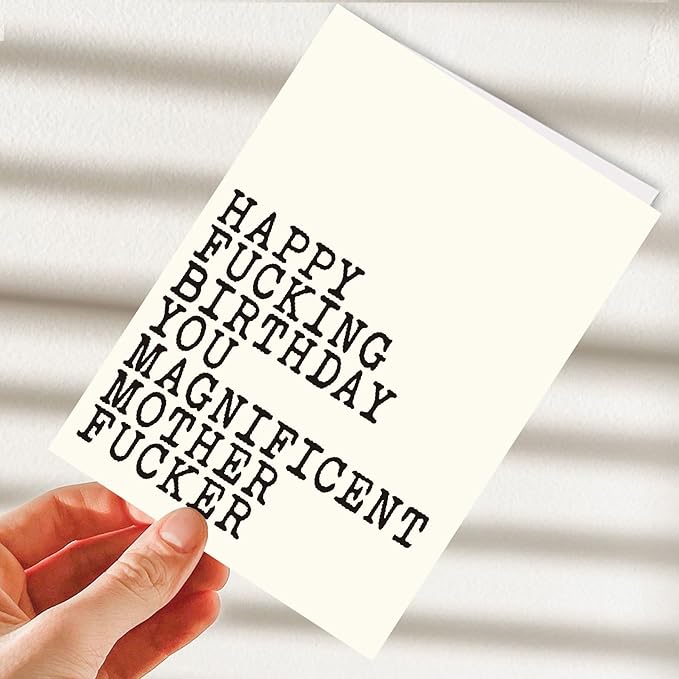 HAPPY
FUCKING
BIRTHDAY
YOU
MAGNIFICENT
MOTHER
FUCKER